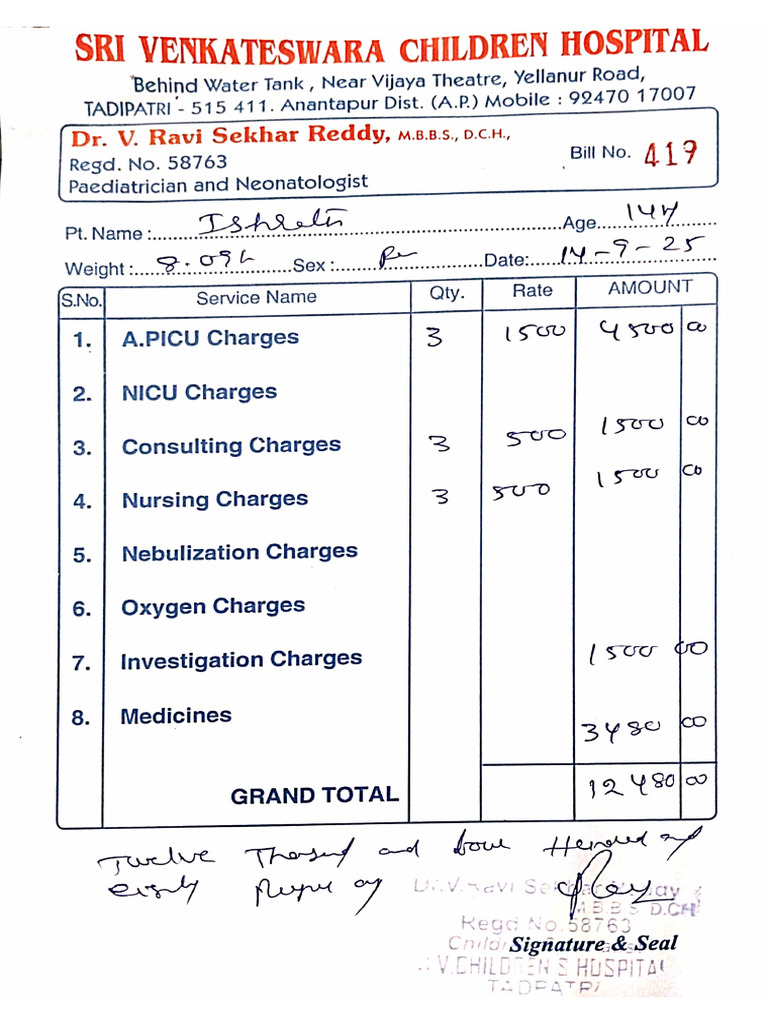 SRI VENKATESWARA CHILDREN HOSPITAL
Behind Water Tank, Near Vijaya Theatre, Yellanur Road,
TADIPATRI - 515 411. Anantapur Dist. (A.P.) Mobile : 92470 17007
Dr. V. Ravi Sekhar Reddy, M.B.B.S., D.C.H.,
Regd. No. 58763 Bill No. 419
Paediatrician and Neonatologist
Pt. Name : Age
Weight : Sex : Date: 14-9-25
S.No. Service Name Qty. Rate AMOUNT
1. A.PICU Charges 3 1500 4500 00
2. NICU Charges
3. Consulting Charges 3 500 1500 00
4. Nursing Charges 3 500 1500 00
5. Nebulization Charges
6. Oxygen Charges
7. Investigation Charges 1500 00
8. Medicines 3480 00
GRAND TOTAL 12480 00
Twelve Thousand and four Hundred and
eighty only
Dr.V.Ravi Sekhar Reddy
M.B.B.S D.CH
Regd No.58763
Signature & Seal
V.CHILDREN'S HOSPITAL
TADPATRI